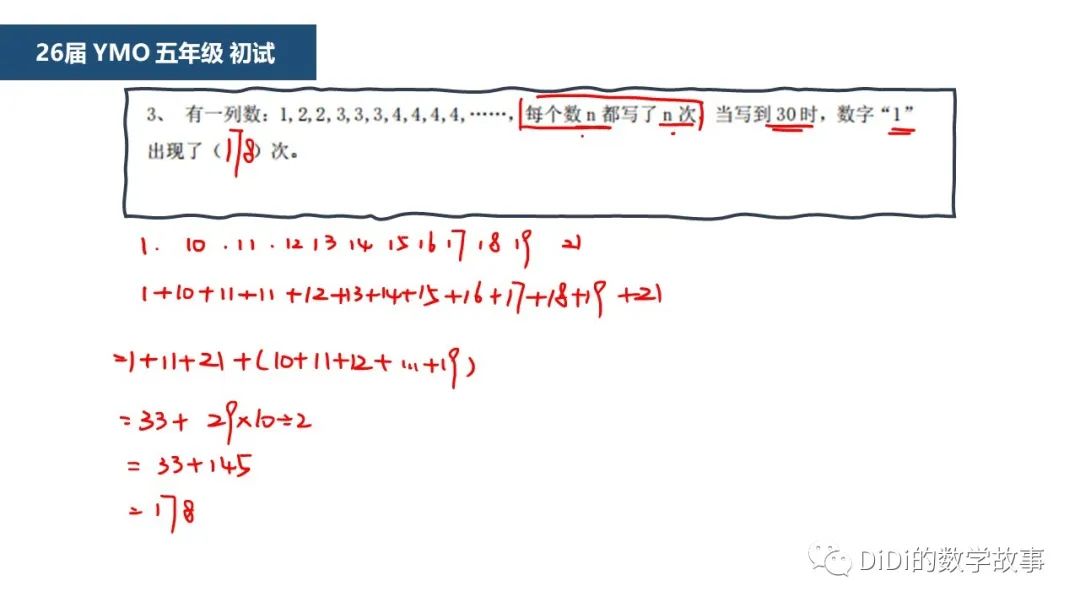 26届 YMO 五年级 初试
3、 有一列数：1,2,2,3,3,3,4,4,4,4,……，每个数 n 都写了 n 次，当写到 30 时，数字“1”
出现了（178）次。
1. 10 . 11 . 12 13 14 15 16 17 18 19 21
1+10+11+11+12+13+14+15+16+17+18+19+21
=1+11+21+(10+11+12+...+19)
=33+ 29×10÷2
= 33+145
= 178
DiDi的数学故事